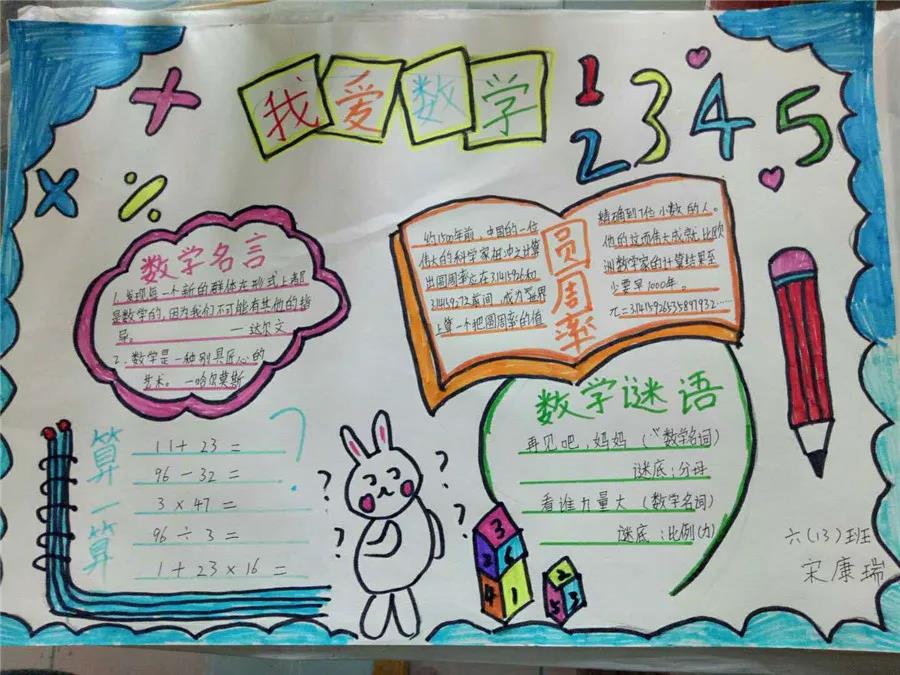 我爱数学
1 2 3 4 5
数学名言
1、发现每一个新的群体在形式上都
是数学的,因为我们不可能有其他的指
导。 —达尔文
2、数学是一种别具匠心的
艺术。—哈尔莫斯
圆周率
约1500年前,中国的一位
伟大的科学家祖冲之计算
出圆周率应在3.1415926和
3.1415927之间,成为世界
上第一个把圆周率的值
精确到7位小数的人。
他的这项伟大成就比欧
洲数学家的计算结果至
少要早1000年。
π=3.1415926535897932……
算一算
11+23=
96-32=
3×47=
96÷3=
1+23×16=
?
? ? ? ?
数学谜语
再见吧,妈妈(数学名词)
谜底:分母
看谁力量大(数学名词)
谜底:比例(力)
3
3 6
4 1
2
5 3
六(13)班
宋康瑞